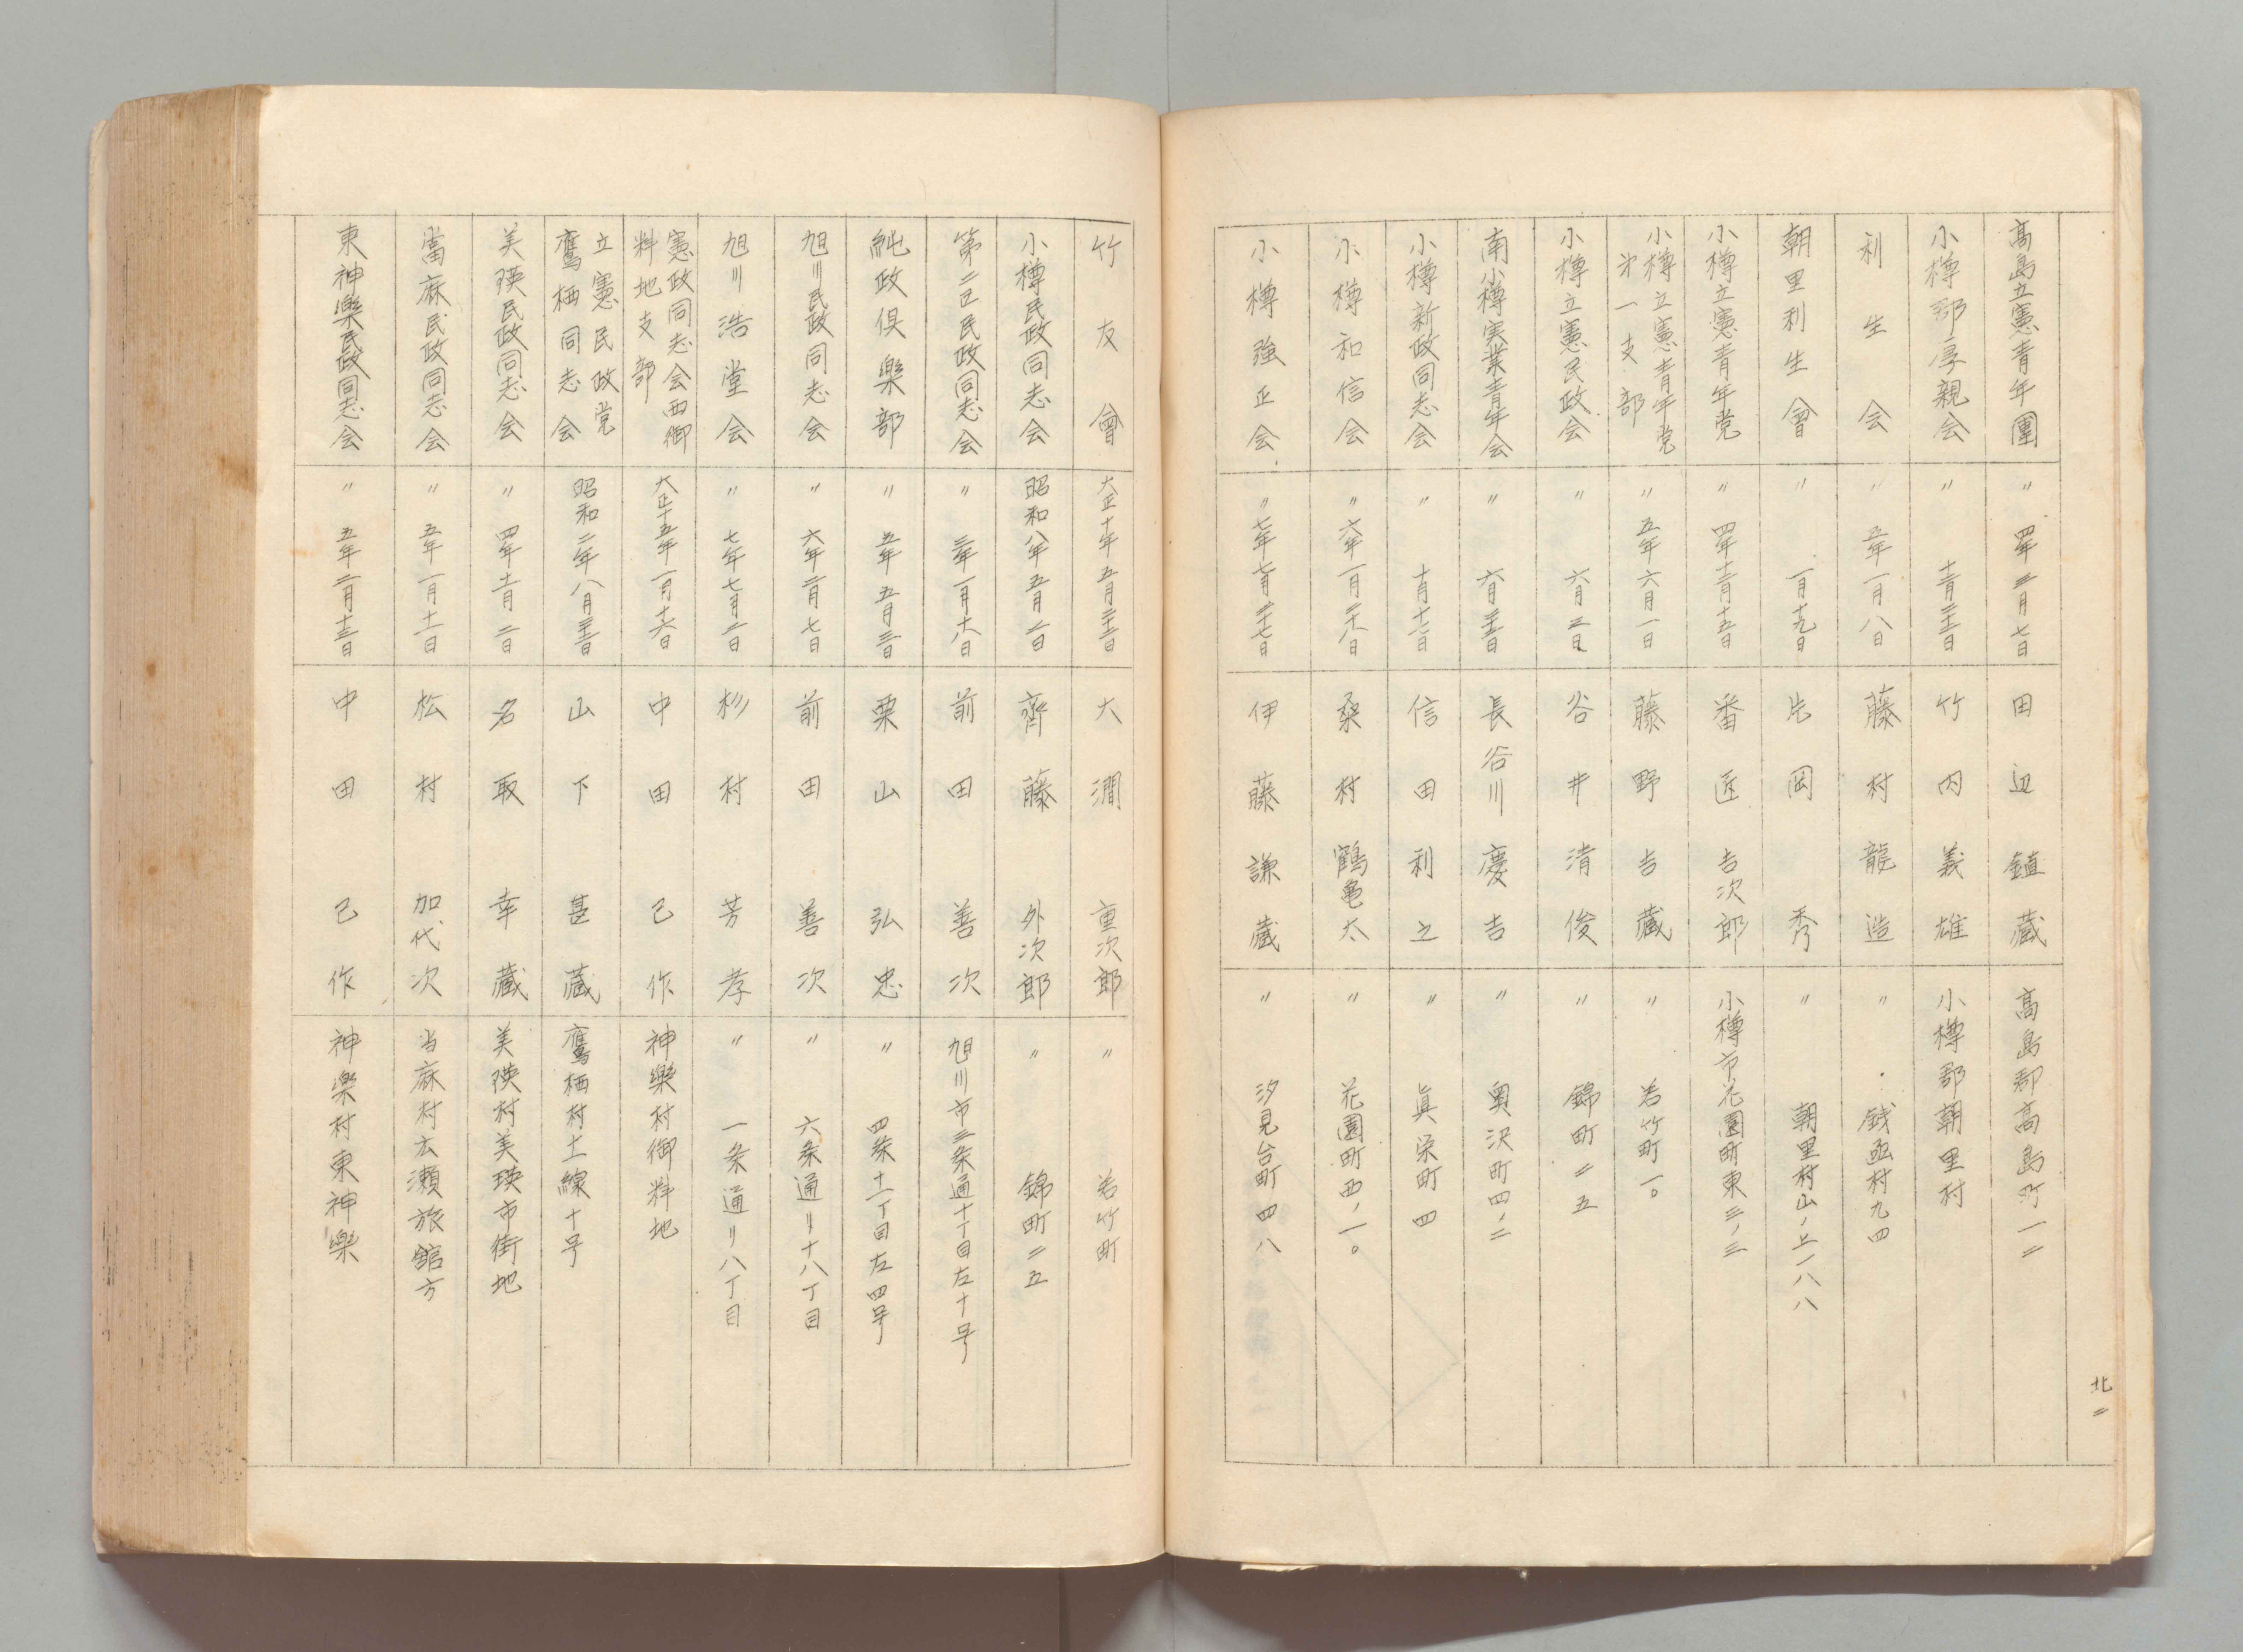 高島立憲青年團 〃 四年三月七日 田辺鎮蔵 高島郡高島町一二
小樽郡厚親会 〃 十一月二十三日 竹内義雄 小樽郡朝里村
利生会 〃 五年一月八日 藤村龍造 〃 銭凾村九四
朝里利生會 〃 一月十九日 片岡秀 〃 朝里村山ノ上一八八
小樽立憲青年党 〃 四年十二月十五日 番匠吉次郎 小樽市花園町東三ノ三
小樽立憲青年党才一支部 〃 五年六月一日 藤野吉蔵 〃 若竹町一〇
小樽立憲民政会 〃 六月三日 谷井清俊 〃 錦町二五
南小樽実業青年会 〃 六月三十日 長谷川慶吉 〃 奥沢町四ノ二
小樽新政同志会 〃 十月十六日 信田利之 〃 眞栄町四
小樽和信会 〃 六年一月二十八日 桑村鶴亀太 〃 花園町西ノ一〇
小樽強正会 〃 七年七月二十七日 伊藤謙蔵 〃 汐見台町四八
北二
竹友會 大正十年五月二十三日 大澗重次郎 〃 若竹町
小樽民政同志会 昭和八年五月二日 齊藤外次郎 〃 錦町二五
第二区民政同志会 〃 三年一月十八日 前田善次 旭川市三条通十丁目左十号
純政倶楽部 〃 五年五月三日 栗山弘忠 〃 四条十一丁目左四号
旭川民政同志会 〃 六年二月七日 前田善次 〃 六条通リ十八丁目
旭川浩堂会 〃 七年七月二日 杉村芳孝 〃 一条通リ八丁目
憲政同志会西御料地支部 大正十五年一月十六日 中田己作 神樂村御料地
立憲民政党鷹栖同志会 昭和二年八月二十三日 山下甚蔵 鷹栖村十一線十号
美瑛民政同志会 〃 四年十一月二日 名取幸蔵 美瑛村美瑛市街地
當麻民政同志会 〃 五年一月十一日 松村加代次 当麻村広瀬旅舘方
東神樂民政同志会 〃 五年二月十三日 中田己作 神樂村東神樂